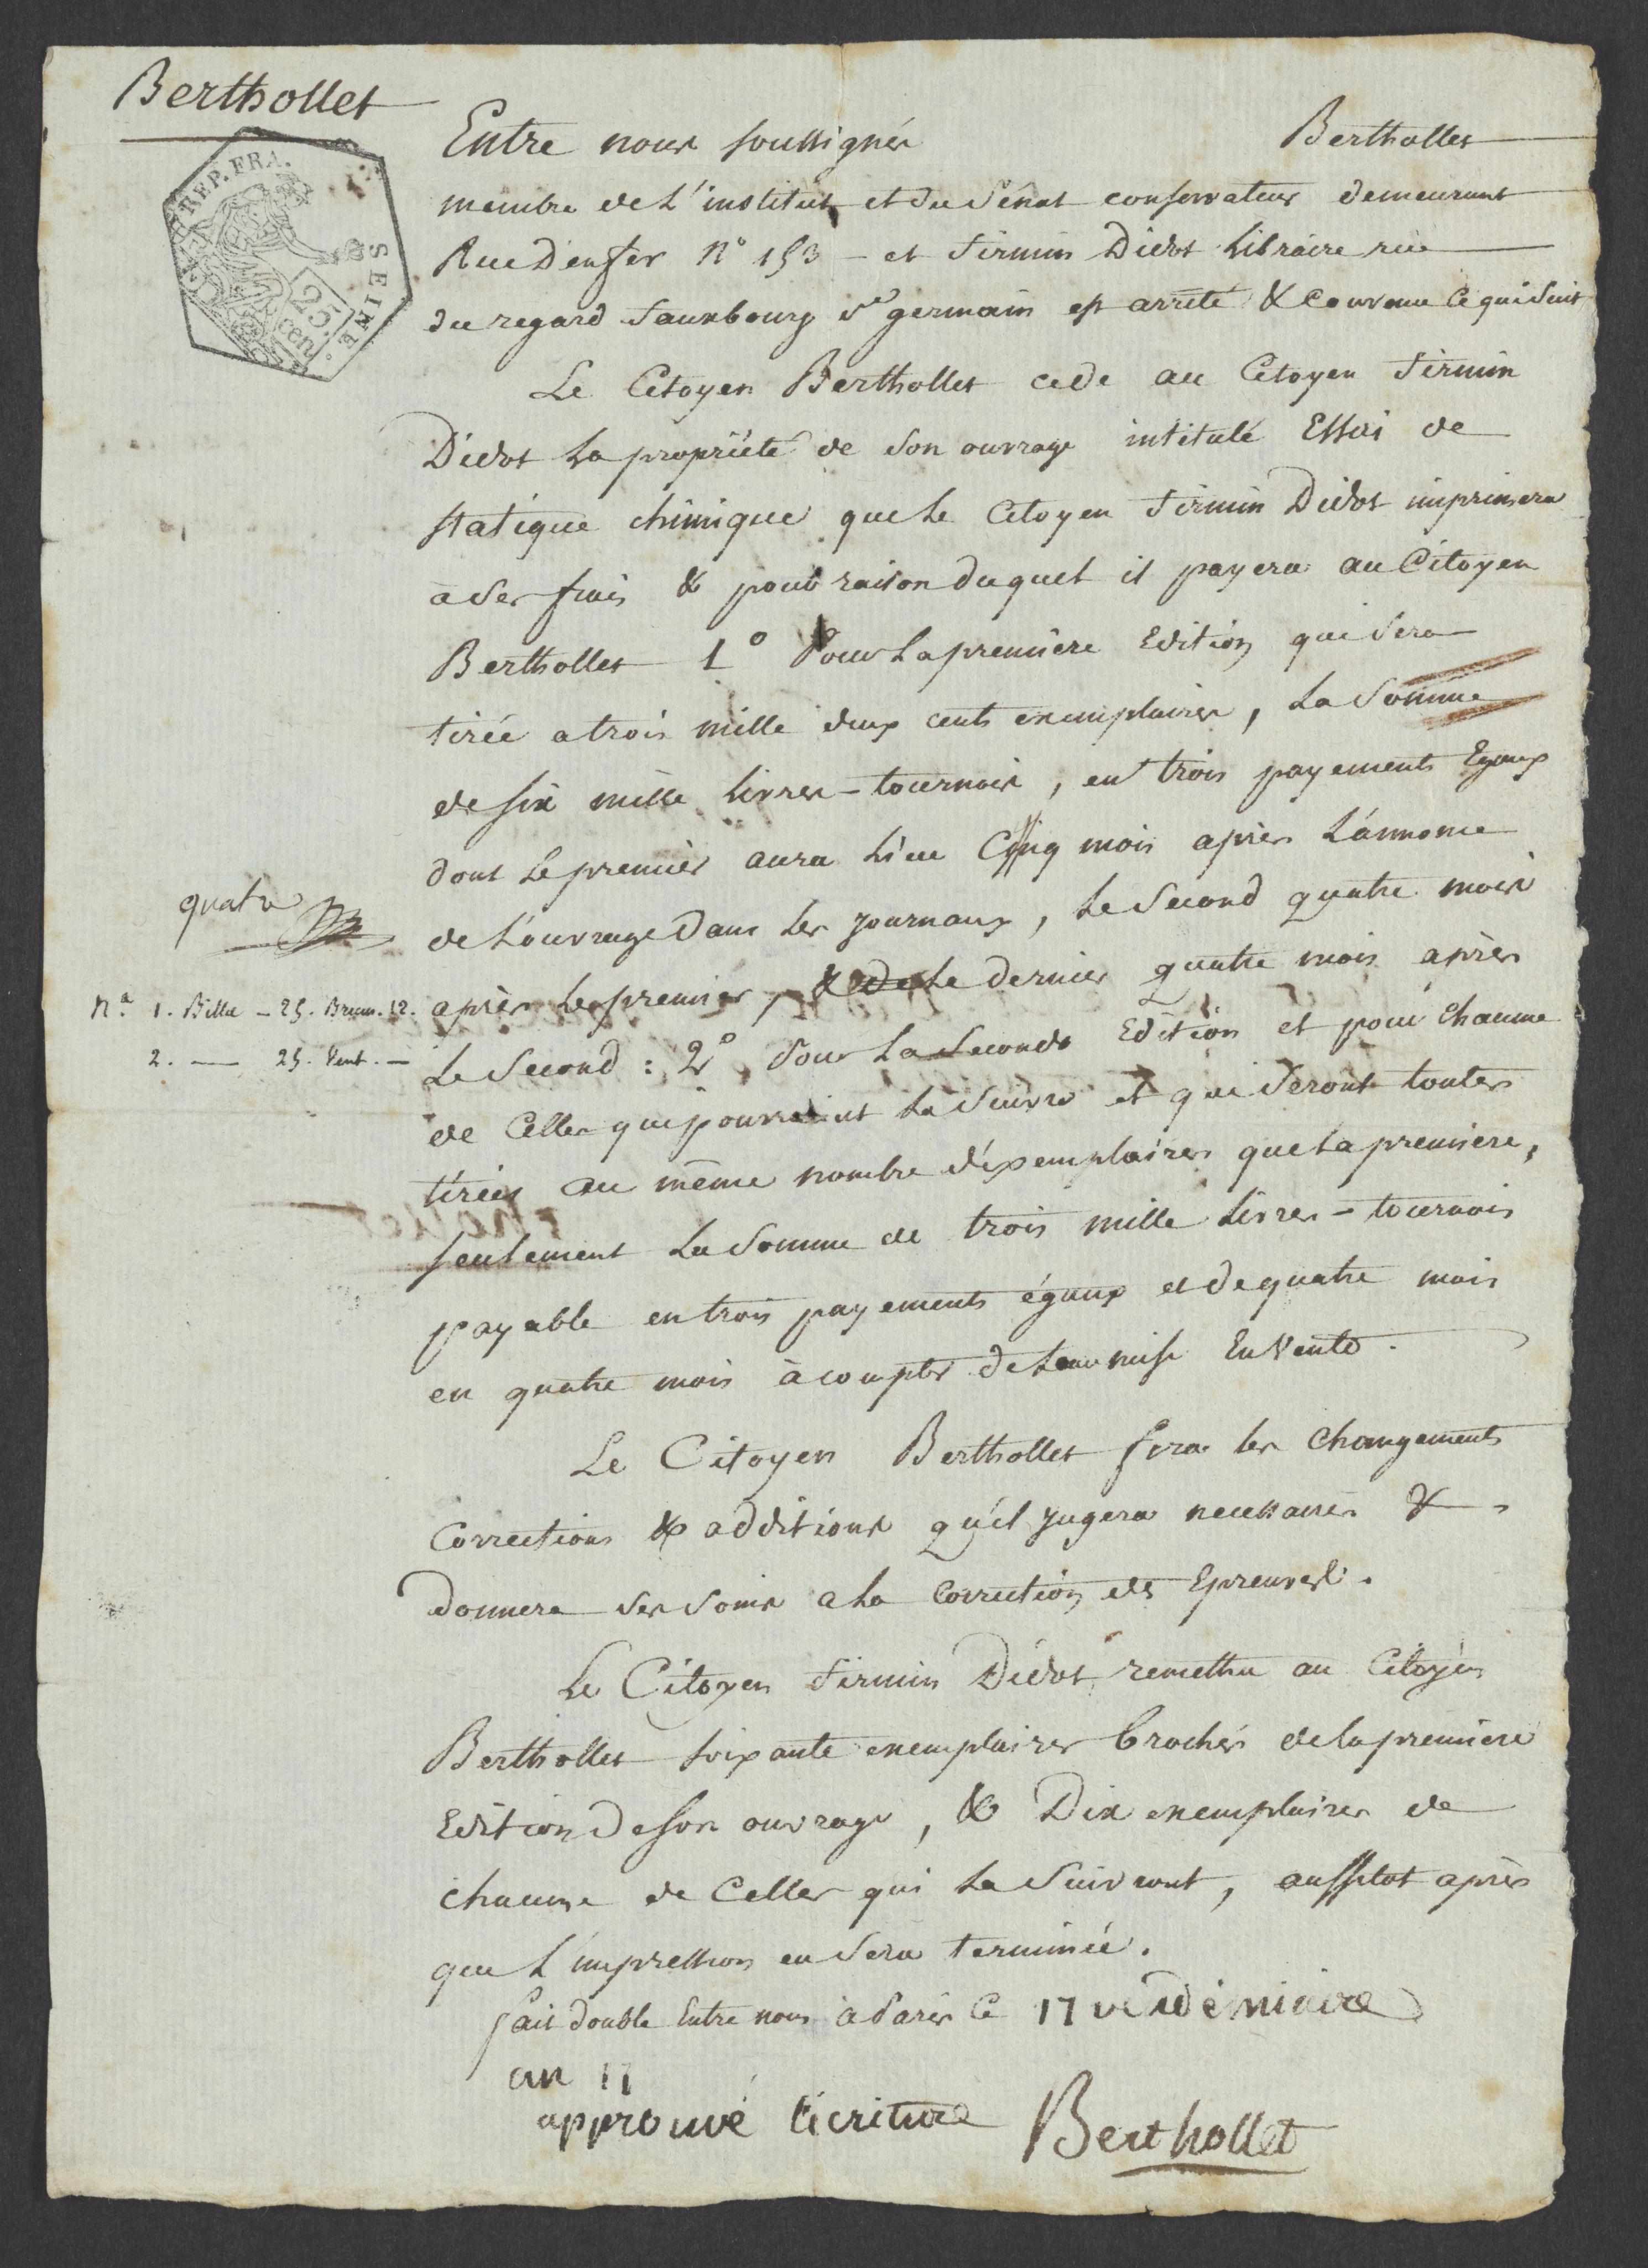 Berthollet
REP. FRA.
SEINE
25.
cen.
Entre nous soussignés Berthollet
membre de L'institut et du Sénat conservateur demeurant
Rue D'enfer N° 153 - et firmin Didot Libraire rue
du regard fauxbourg St germain est arrêté & convenu Ce qui Suit
Le Citoyen Berthollet cede au Citoyen firmin
Didot La propriété de Son ouvrage intitulé Essai de
statique chimique que Le Citoyen firmin Didot imprimera
a Ses frais & pour raison duquel il payera au Citoyen
Berthollet 1° Pour La première Edition qui Sera
tirée a trois mille deux cents exemplaires, La Somme
de six mille Livres-tournois, en trois payements Egaux
dont Le premier aura Lieu Cinq mois après L'annonce
quatre
de L'ouvrage Dans Les journaux, Le Second quatre mois
après Le premier, & Le dernier quatre mois après
Le Second : 2° Pour La Seconde Edition et pour Chacune
de Celles qui pourraient La Suivre et qui Seront toutes
tirées au même nombre d'exemplaires que La première,
seulement La Somme de trois mille Livres-tournois
payable en trois payements égaux et de quatre mois
en quatre mois à compter de Leur mise En Vente.
Nª 1. Billet - 25. Brum. 12.
2. — 25. Vent. —
Le Citoyen Berthollet fera les changements
Corrections & additions qu'il jugera necessaires &
donnera Ses Soins a La Correction des Epreuves.
Le Citoyen firmin Didot remettra au Citoyen
Berthollet soixante exemplaires brochés de La première
Edition De son ouvrage, & Dix exemplaires de
chacune de Celles qui La Suivront, aussitot après
que L'impression en Sera terminée.
fait double Entre nous à Paris Ce 17 vendémiaire
an 11
approuvé l'écriture Berthollet